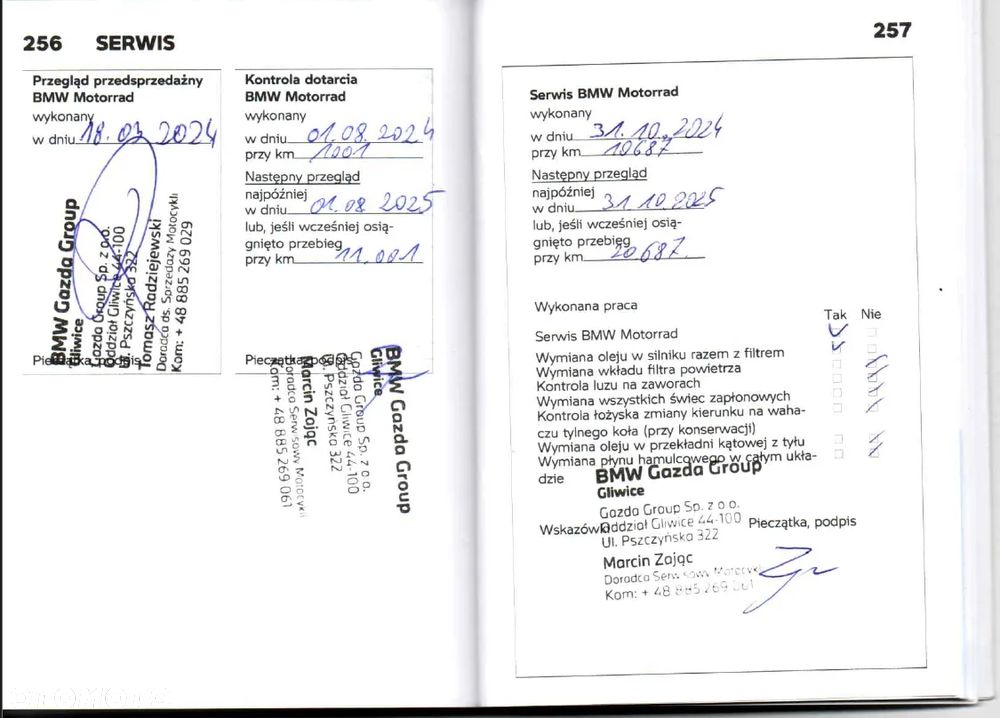 256 SERWIS
Przegląd przedsprzedażny
BMW Motorrad
wykonany
w dniu 18.03.2024
BMW Gazda Group
Gliwice
Gazda Group Sp. z o.o.
Oddział Gliwice 44-100
Ul. Pszczyńska 322
Tomasz Radziejewski
Doradca ds. Sprzedaży Motocykli
Kom: + 48 885 269 029
Pieczątka, podpis
Kontrola dotarcia
BMW Motorrad
wykonany
w dniu 01.08.2024
przy km 1001
Następny przegląd
najpóźniej
w dniu 01.08 2025
lub, jeśli wcześniej osią-
gnięto przebieg
przy km 11.001
Pieczątka, podpis
BMW Gazda Group
Gliwice
Gazda Group Sp. z o.o.
Oddział Gliwice 44-100
Ul. Pszczyńska 322
Marcin Zając
Doradca Serwisowy Motocykli
Kom: + 48 885 269 061
257
Serwis BMW Motorrad
wykonany
w dniu 31.10.2024
przy km 10687
Następny przegląd
najpóźniej
w dniu 31.10.2025
lub, jeśli wcześniej osią-
gnięto przebieg
przy km 20687.
Wykonana praca
Tak Nie
Serwis BMW Motorrad
Wymiana oleju w silniku razem z filtrem
Wymiana wkładu filtra powietrza
Kontrola luzu na zaworach
Wymiana wszystkich świec zapłonowych
Kontrola łożyska zmiany kierunku na waha-
czu tylnego koła (przy konserwacji)
Wymiana oleju w przekładni kątowej z tyłu
Wymiana płynu hamulcowego w całym ukła-
dzie
BMW Gazda Group
Gliwice
Gazda Group Sp. z o.o.
Wskazówki Oddział Gliwice 44-100 Pieczątka, podpis
Ul. Pszczyńska 322
Marcin Zając
Doradca Serwisowy Motocykli
Kom: + 48 885 269 061